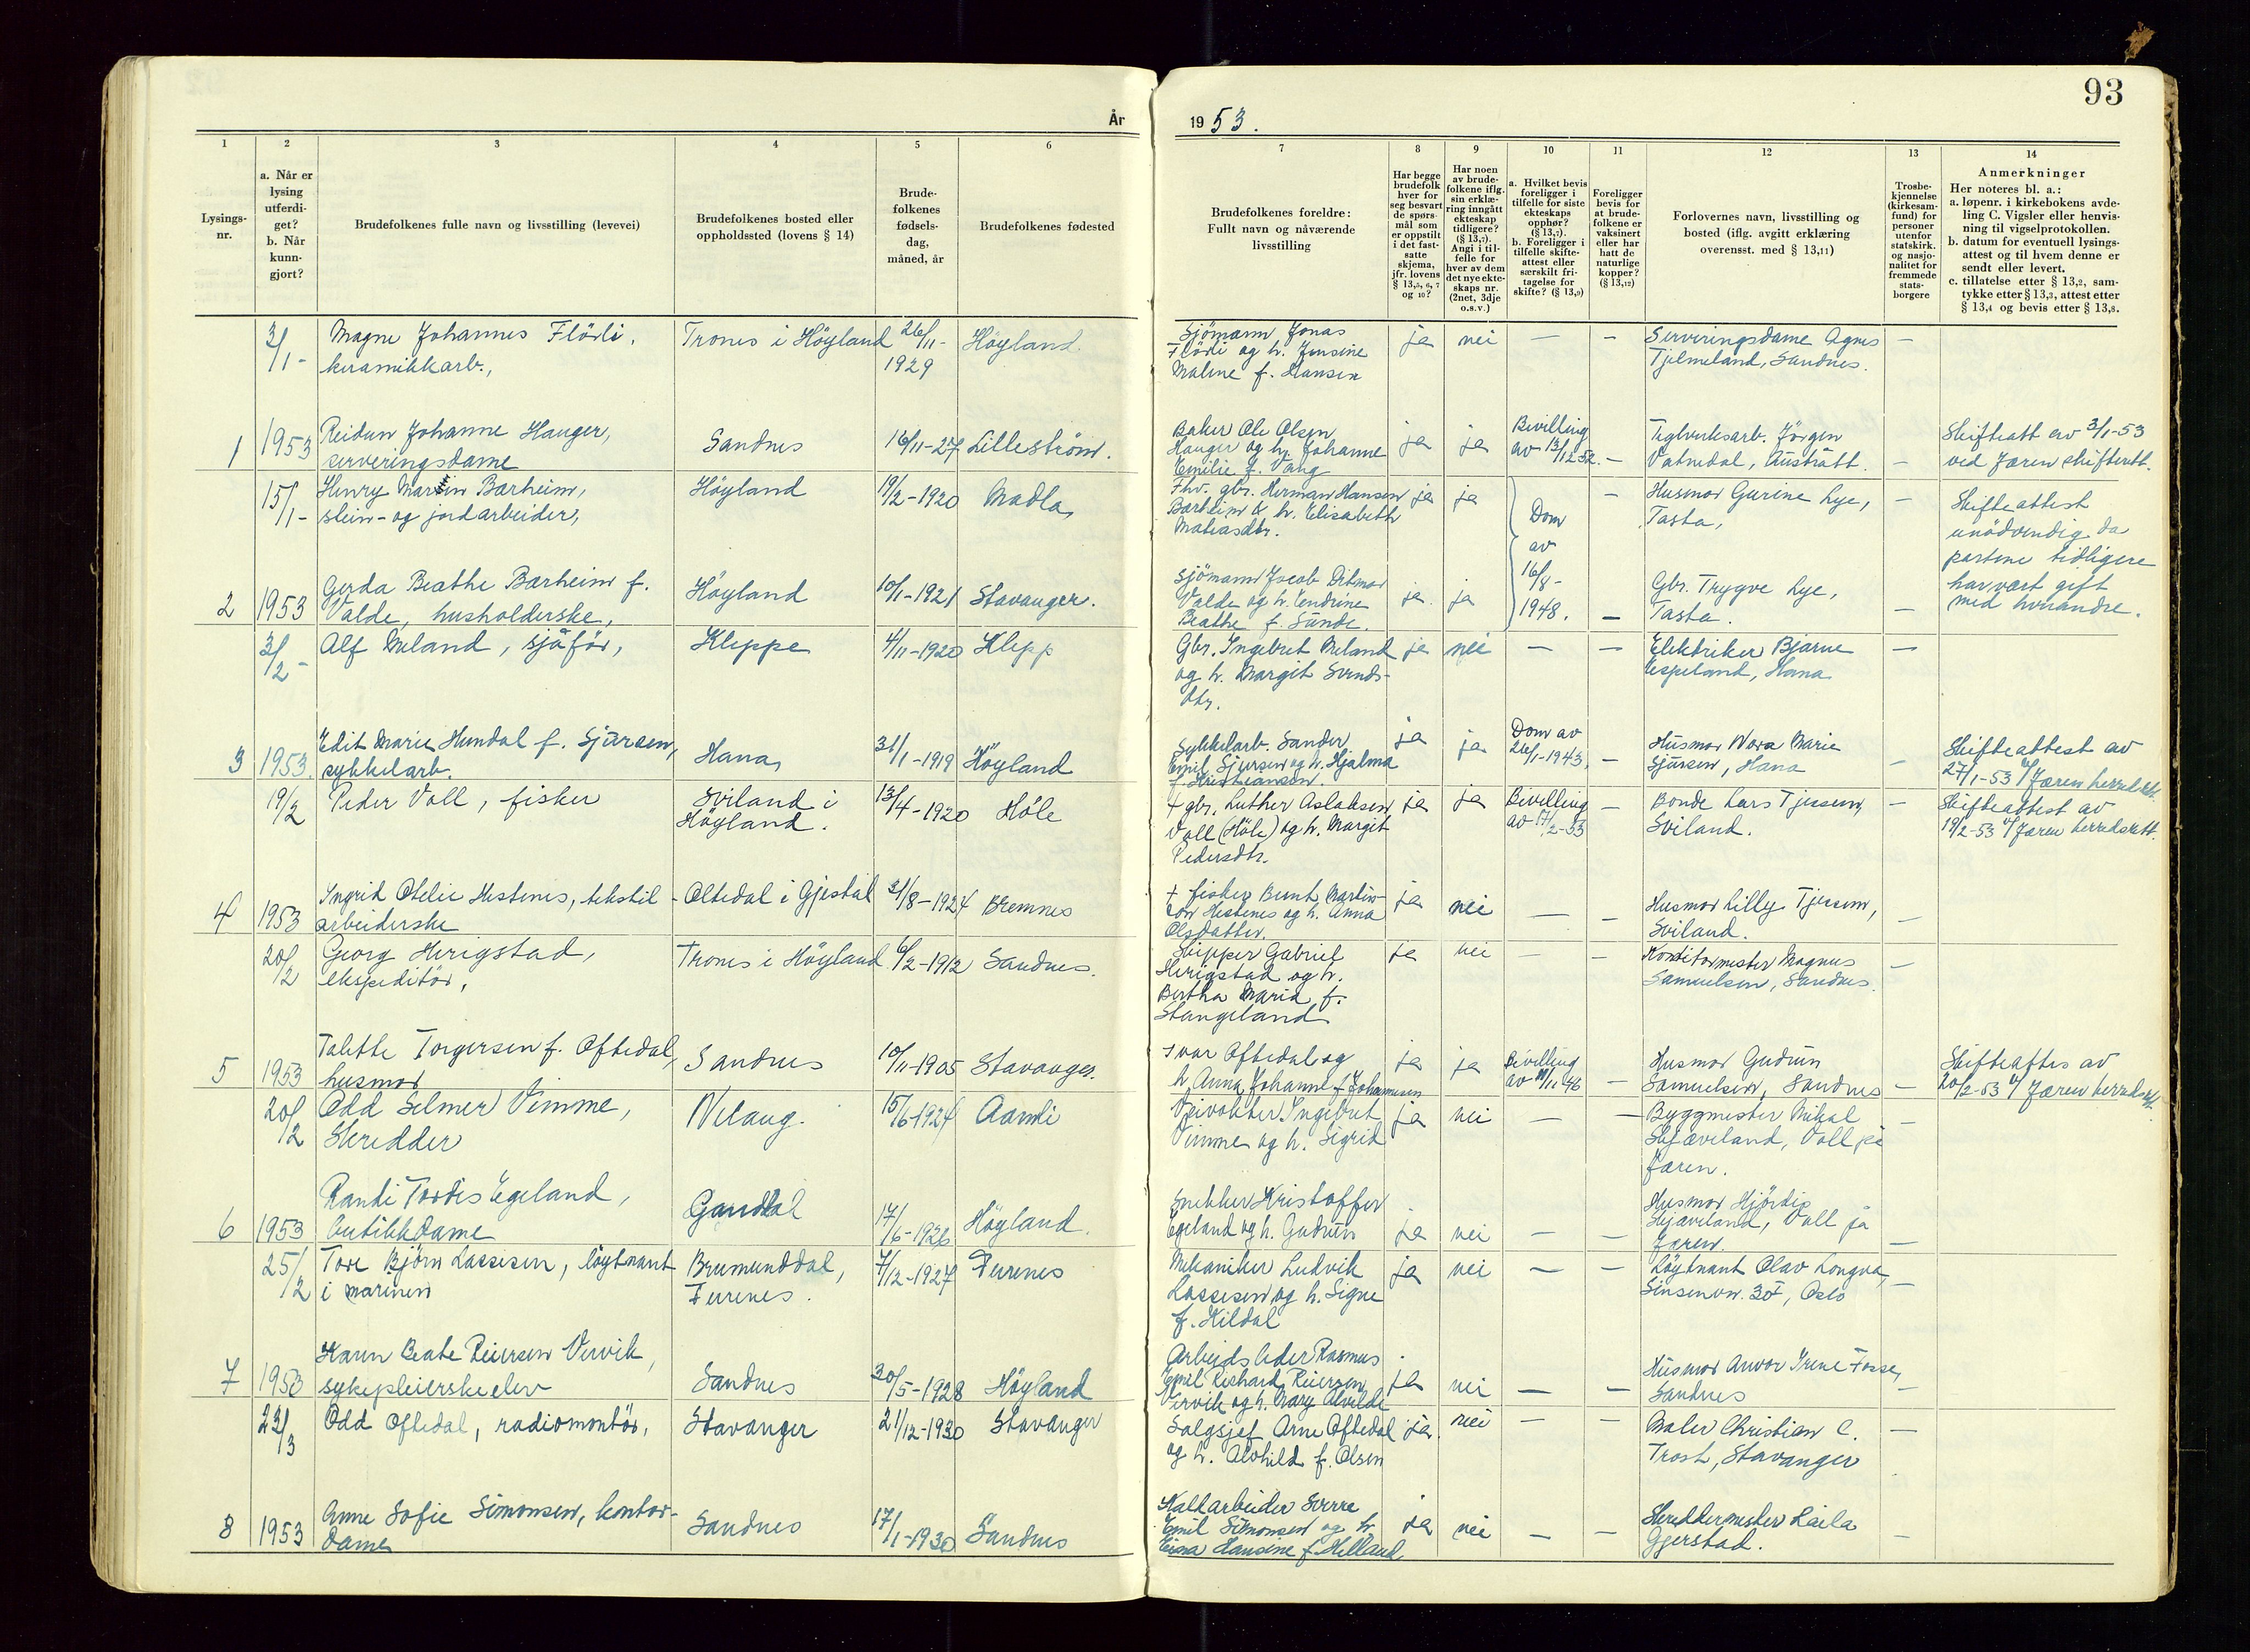 93
År 1953.
1 2 3 4 5 6 7 8 9 10 11 12 13 14
Lysings-
nr.
a. Når er
lysing
utferdi-
get?
b. Når
kunn-
gjort?
Brudefolkenes fulle navn og livsstilling (levevei)
Brudefolkenes bosted eller
oppholdssted (lovens § 14)
Brude-
folkenes
fødsels-
dag,
måned, år
Brudefolkenes fødested
Brudefolkenes foreldre:
Fullt navn og nåværende
livsstilling
Har begge
brudefolk
hver for
seg besvart
de spørs-
mål som
er oppstilt
i det fast-
satte
skjema,
jfr. lovens
§ 13,5, 6, 7
og 10?
Har noen
av brude-
folkene iflg.
sin erklæ-
ring inngått
ekteskap
tidligere?
(§ 13,7).
Angi i til-
felle for
hver av dem
det nye ekte-
skaps nr.
(2net, 3dje
o.s.v.)
a. Hvilket bevis
foreligger i
tilfelle for siste
ekteskaps
opphør?
(§ 13,7).
b. Foreligger i
tilfelle skifte-
attest eller
særskilt fri-
tagelse for
skifte? (§ 13,9)
Foreligger
bevis for
at brude-
folkene er
vaksinert
eller har
hatt de
naturlige
kopper?
(§ 13,12)
Forlovernes navn, livsstilling og
bosted (iflg. avgitt erklæring
overensst. med § 13,11)
Trosbe-
kjennelse
(kirkesam-
fund) for
personer
utenfor
statskirk.
og nasjo-
nalitet for
fremmede
stats-
borgere
Anmerkninger
Her noteres bl. a.:
a. løpenr. i kirkebokens avde-
ling C. Vigsler eller henvis-
ning til vigselprotokollen.
b. datum for eventuell lysings-
attest og til hvem denne er
sendt eller levert.
c. tillatelse etter § 13,2, sam-
tykke etter § 13,3, attest etter
§ 13,4 og bevis etter § 13,8.
3/1- Magne Johannes Flörli, Trones i Höyland 26/11- Höyland. Sjömann Jonas ja nei — — Serveringsdame Agnes —
keramikkarb., 1929 Flörli og h. Jensine Tjelmeland, Sandnes.
Maline f. Hansen
1 1953 Reidun Johanne Hauger, Sandnes 16/11-27 Lilleström. Baker Ole Olsen ja ja Bevilling Teglverksarb. Jörgen Skifteatt av 3/1-53
serveringsdame Hauger og h. Johanne av 13/12 52. — Vatnedal, Austrått. — ved Jæren skifterett.
Emilie f. Vang
15/1- Henry Martin Bærheim, Höyland 19/2-1920 Madla, Fhv. gbr. Herman Hansen ja ja — Husmor Gurine Lye, — Skifteattest
stein- og jordarbeider, Bærheim & h. Elisabeth Dom Tasta, unödvendig da
Mateasdtr. av partene tidligere
2 1953 Gerda Beathe Bærheim f. Höyland 10/1-1921 Stavanger. Sjömann Jacob Ditmar ja ja 16/8- Gbr. Trygve Lye, har vært gift
Valde, husholderske, Valde og h. Endrine 1948. — Tasta. — med hverandre.
Beathe f. Sunde.
3/2- Alf Meland, sjåför, Kleppe 4/11-1920 Klepp Gbr. Ingebret Meland ja nei — — Elektriker Bjarne —
og h. Margit Svends- Espeland, Hana
dtr.
3 1953. Edit Marie Hundal f. Sjursen, Hana, 31/1-1919 Höyland Sykkelarb. Sander ja ja Dom av Husmor Nora Marie Skifteattest av
sykkelarb. Emil Sjursen og h. Hjalma 26/1-1943, — Sjursen, Hana — 27/1-53 v/ Jæren herredsrt.
f. Kristiansen.
19/2 Peder Voll, fisker Sviland i 13/4-1920 Höle + gbr. Luther Aslaksen ja ja Bevilling — Bonde Lars Tjessem, — Skifteattest av
Höyland. Voll (Höle) og h. Margit av 17/2-53 Sviland. 19/2-53 v/ Jæren herredsrett.
Pedersdtr.
4 1953 Ingrid Otelie Hestenes, tekstil- Oltedal i Gjestal 31/8-1924 Bremnes + fisker Bernt Martin- ja nei — — Husmor Lilly Tjessem, —
arbeiderske sen Hestenes og h. Anna Sviland.
Olsdatter.
20/2 Georg Herigstad, Trones i Höyland 6/2-1912 Sandnes. Skipper Gabriel ja nei — — Konditormester Magnus —
ekspeditör, Herigstad og h. Samuelsen, Sandnes.
Bertha Maria f.
Stangeland
5 1953 Talette Torgersen f. Oftedal, Sandnes 10/11-1905 Stavanger. Ivar Oftedal og ja ja Bevilling Husmor Gudrun Skifteattes av
husmor h. Anna Johanne f. Johannesen av /11 46 — Samuelsen, Sandnes — 20/2-53 v/ Jæren herredsrt.
20/2 Odd Selmer Vimme, Nelaug. 15/6-1924 Aamli Veivokter Ingebret ja nei — — Byggmester Mikal —
Skredder Vimme og h. Sigrid Skjæveland, Voll på
Jæren.
6 1953 Randi Tordis Egeland, Gandal 17/6-1926 Höyland. Snekker Kristoffer Husmor Hjördis
butikkdame Egeland og h. Gudrun ja nei — — Skjæveland, Voll på
Jæren. —
25/2 Tore Björn Lassesen, löytnant Brumunddal, 7/12-1927 Furenes Mekaniker Ludvik ja nei — — Löytnant Olav Longva, —
i marinen Furenes. Lassesen og h. Signe Sinsenvn. 30 F, Oslo
f. Kildal
7 1953 Karen Beate Reiersen Vervik, Sandnes 30/5-1928 Höyland Arbeidsleder Rasmus Husmor Anvor Irene Fosse,
sykepleierskeelev Emil Richard Reiersen ja nei — — Sandnes —
Vervik og h. Mary Alvilde
23/3 Odd Oftedal, radiomontör, Stavanger 21/12-1930 Stavanger Salgsjef Arne Oftedal ja nei — — Maler Christian C. —
og h. Alvhild f. Olsen Trost, Stavanger
8 1953 Anne Sofie Simonsen, kontor- Sandnes 17/1-1930 Sandnes Kaldarbeider Sverre ja nei — — Skreddermester Laila —
dame Emil Simonsen og h. Gjerstad.
Hansine f. Helland